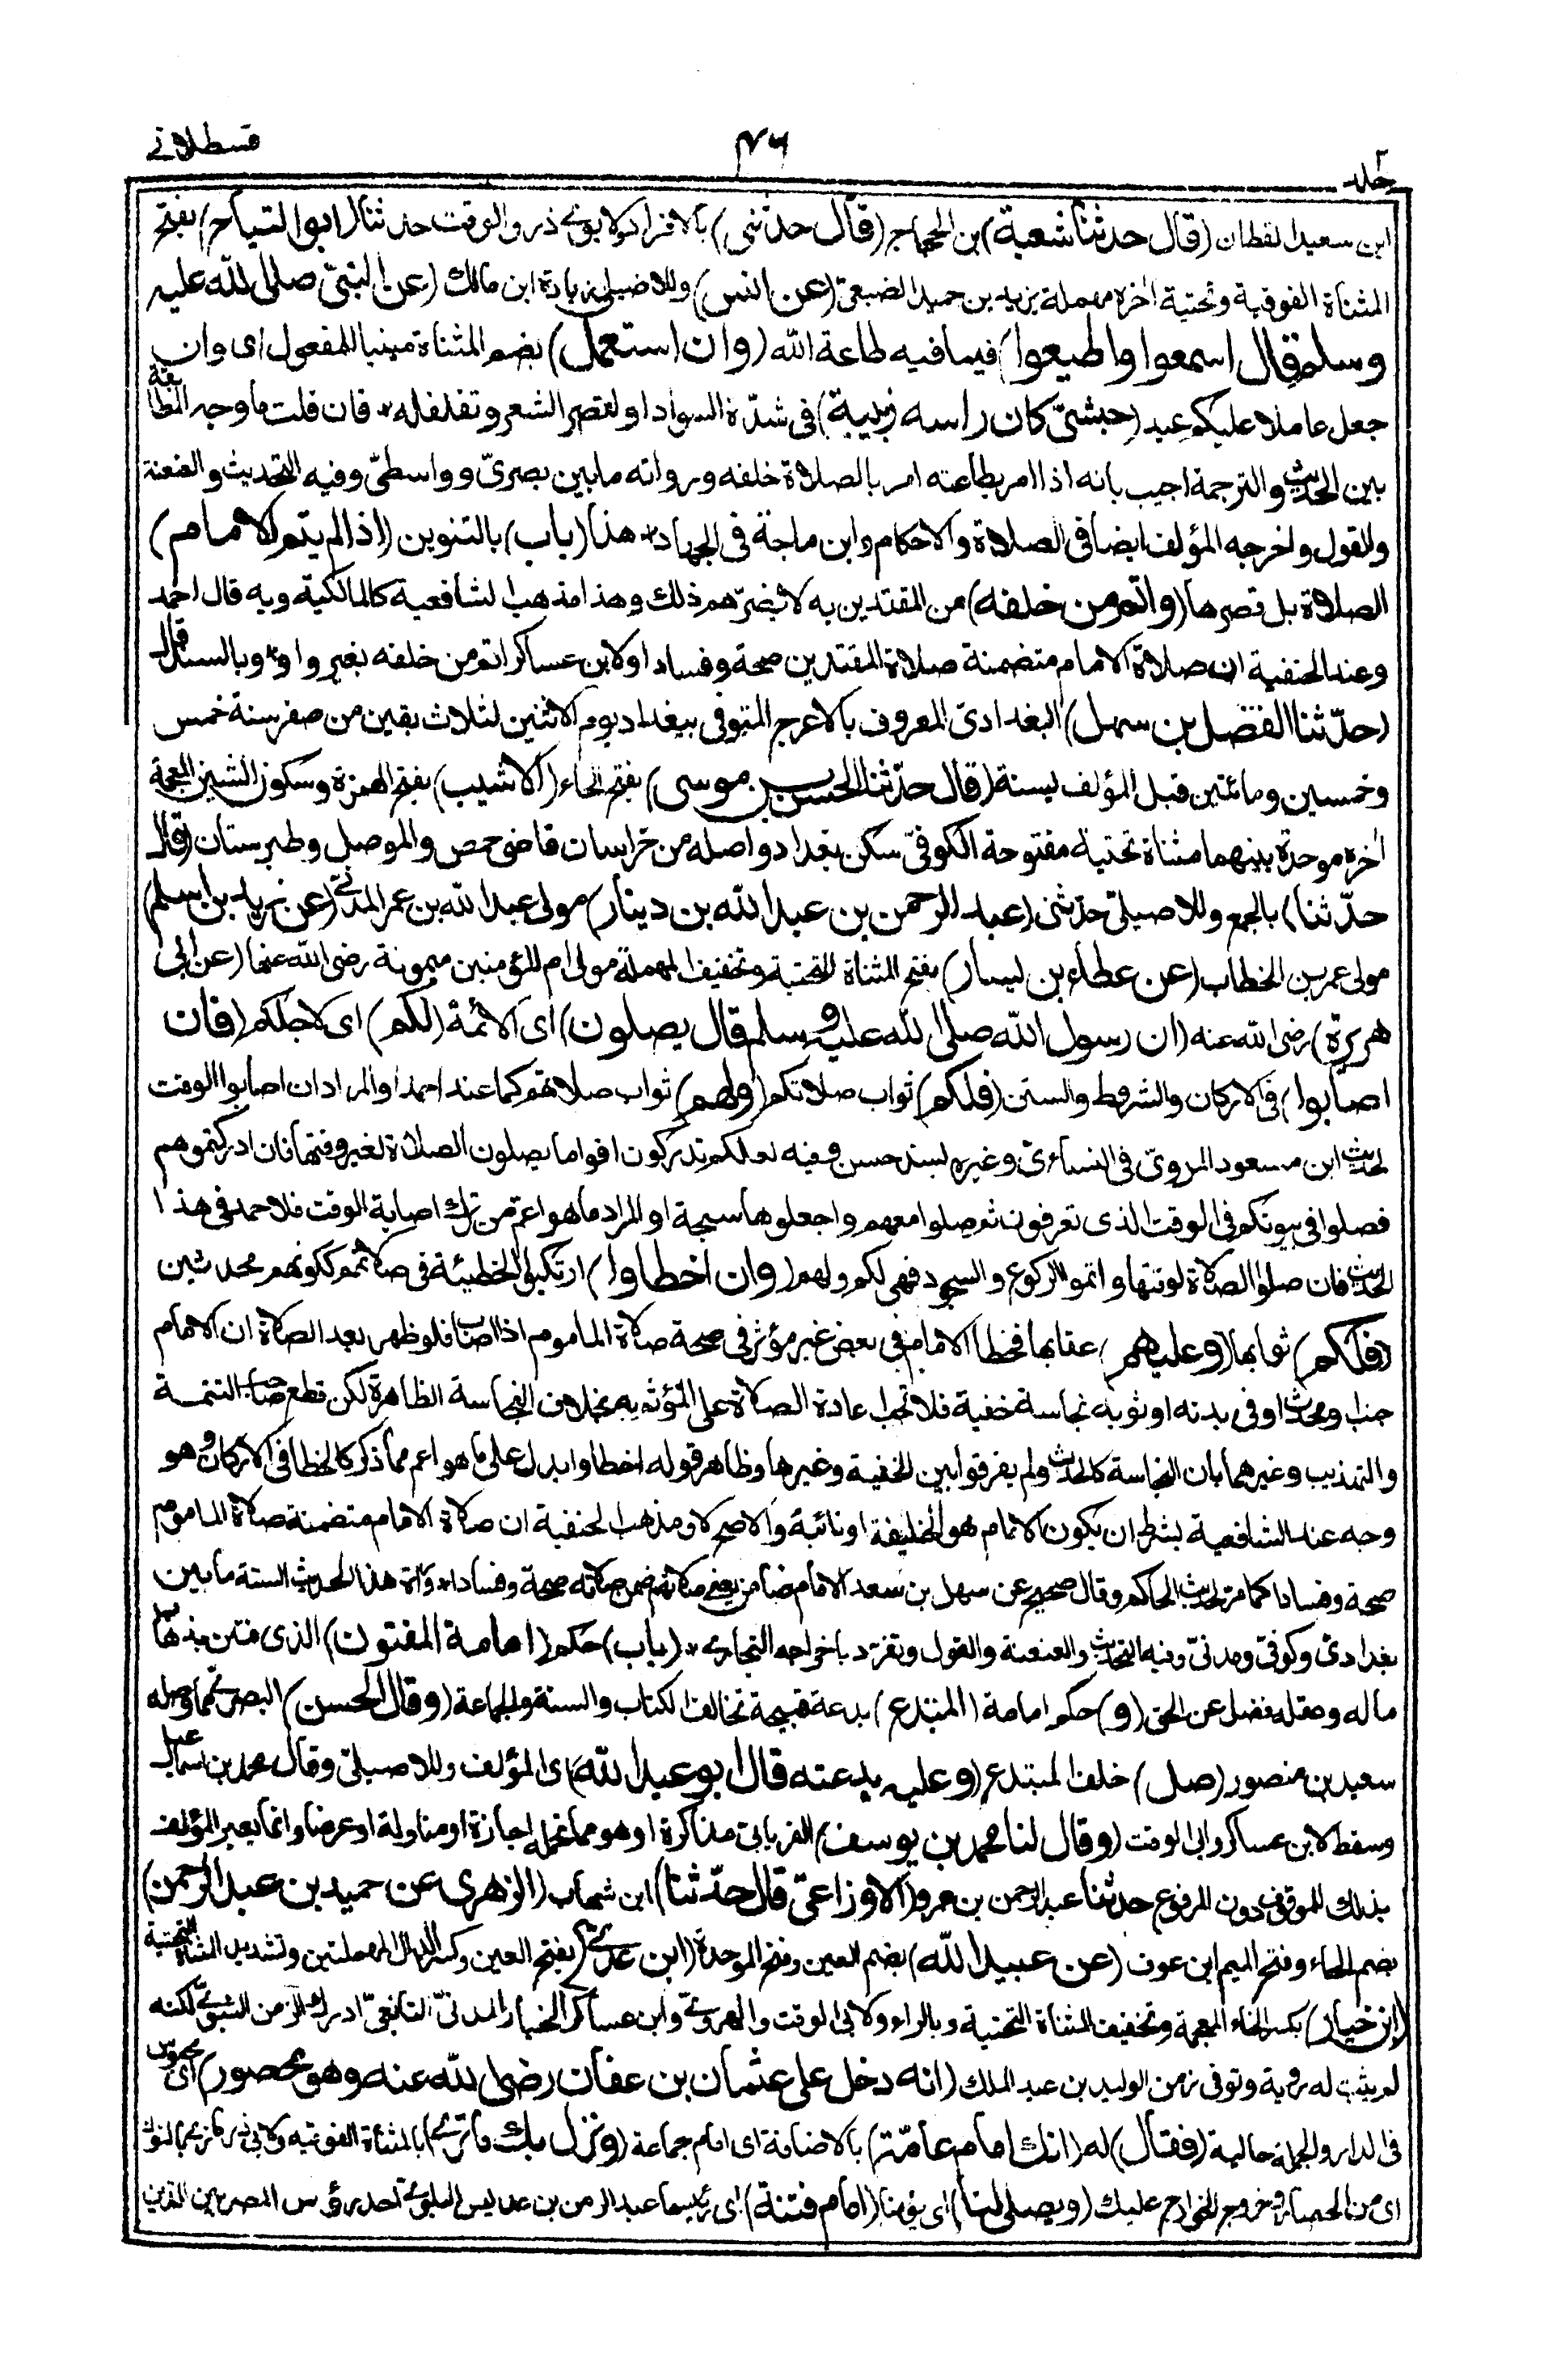 قسطلانى
٤٦
جلد ٢
ابن سعيد القطان (قال حدثنا شعبة) بن الحجاج (قال حدثنى) بالافراد ولابوى ذر والوقت حدثنا (ابو التياح) بفتح
المثناة الفوقية وتحتية اخره مهملة يزيد بن حميد الضبعى (عن انس) وللاصيلى زيادة ابن مالك (عن النبى صلى الله عليه
وسلم قال اسمعوا واطيعوا) فيما فيه طاعة الله (وان استعمل) بضم المثناة مبنيا للمفعول اى وان
جعل عاملا عليكم عبد (حبشى كان راسه زبيبة) فى شدة السواد او لقصر الشعر وتفلفله * فان قلت ما وجه المطابقة
بين الحديث والترجمة اجيب بانه اذا امر بطاعته امر بالصلاة خلفه ورواته ما بين بصرى وواسطى وفيه التحديث والعنعنة
والقول واخرجه المؤلف ايضا فى الصلاة والاحكام وابن ماجة فى الجهاد * هذا (باب) بالتنوين (اذا لم يتم الامام)
الصلاة بل قصرها (واتم من خلفه) من المقتدين به لا يضرهم ذلك وهذا مذهب الشافعية كالمالكية وبه قال احمد
وعند الحنفية ان صلاة الامام متضمنة صلاة المقتدين صحة وفسادا ولابن عساكر اتم من خلفه بغير واو * وبالسند قال
(حدثنا الفضل بن سهل) البغدادى المعروف بالاعرج المتوفى ببغداد يوم الاثنين لثلاث بقين من صفر سنة خمس
وخمسين ومائتين قبل المؤلف بسنة (قال حدثنا الحسن بن موسى) بفتح الحاء (الاشيب) بفتح الهمزة وسكون الشين المعجمة
اخره موحدة بينهما مثناة تحتية مفتوحة الكوفى سكن بغداد واصله من خراسان قاضى حمص والموصل وطبرستان (قال
حدثنا) بالجمع وللاصيلى حدثنى (عبد الرحمن بن عبد الله بن دينار) مولى عبد الله بن عمر المدنى (عن زيد بن اسلم)
مولى عمر بن الخطاب (عن عطاء بن يسار) بفتح المثناة التحتية وتخفيف المهملة مولى ام المؤمنين ميمونة رضى الله عنها (عن ابى
هريرة) رضى الله عنه (ان رسول الله صلى الله عليه وسلم قال يصلون) اى الائمة (لكم) اى لاجلكم (فان
اصابوا) فى الاركان والشروط والسنن (فلكم) ثواب صلاتكم (ولهم) ثواب صلاتهم كما عند احمد او المراد ان اصابوا الوقت
لحديث ابن مسعود المروى فى النساءى وغيره بسند حسن وفيه لعلكم تدركون اقواما يصلون الصلاة لغير وقتها فان ادركتموهم
فصلوا فى بيوتكم فى الوقت الذى تعرفون ثم صلوا معهم واجعلوها سبحة او المراد ما هو اعم من ترك اصابة الوقت فلاحمد فى هذا
الحديث فان صلوا الصلاة لوقتها واتموا الركوع والسجود فهى لكم ولهم (وان اخطاوا) ارتكبوا الخطيئة فى صلاتهم ككونهم محدثين
(فلكم) ثوابها (وعليهم) عقابها فخطا الامام فى بعض غير مؤثر فى صحة صلاة الماموم اذا اصاب فلو ظهر بعد الصلاة ان الامام
جنب او محدث او فى بدنه او ثوبه نجاسة خفية فلا تجب اعادة الصلاة على المؤتم به بخلاف النجاسة الظاهرة لكن قطع صاحب التتمة
والتهذيب وغيرهما بان النجاسة كالحدث ولم يفرقوا بين الخفية وغيرها وظاهر قوله اخطاوا يدل على ما هو اعم مما ذكر كالخطا فى الاركان وهو
وجه عند الشافعية بشرط ان يكون الامام هو الخليفة او نائبه والاصح لا ومذهب الحنفية ان صلاة الامام متضمنة صلاة الماموم
صحة وفسادا كما مر لحديث الحاكم وقال صحيح عن سهل بن سعد الامام ضامن يعنى صلاتهم ضمن صلاته صحة وفسادا * ورواة هذا الحديث الستة ما بين
بغدادى وكوفى ومدنى وفيه التحديث والعنعنة والقول وتفرد باخراجه البخارى * (باب) حكم (امامة المفتون) الذى فتن بذهاب
ماله وعقله فضل عن الحق (و) حكم امامة (المبتدع) بدعة قبيحة تخالف الكتاب والسنة والجماعة (وقال الحسن) البصرى مما وصله
سعيد بن منصور (صل) خلف المبتدع (وعليه بدعته قال ابو عبد الله) اى المؤلف وللاصيلى وقال محمد بن اسماعيل
وسقط لابن عساكر وابى الوقت (وقال لنا محمد بن يوسف) الفريابى مذاكرة او هو مما تحمله اجازة او مناولة او عرضا وانما يعبر المؤلف
بذلك للموقوف دون المرفوع حدثنا عبد الرحمن بن عمرو (الاوزاعى قال حدثنا) ابن شهاب (الزهرى عن حميد بن عبد الرحمن)
بضم الحاء وفتح الميم ابن عوف (عن عبيد الله) بضم العين وفتح الموحدة (ابن عدى) بفتح العين وكسر الدال المهملتين وتشديد المثناة التحتية
(ابن خيار) بكسر الخاء المعجمة وتخفيف المثناة التحتية وبالراء ولابى الوقت والهروى وابن عساكر الخيار المدنى التابعى ادرك الزمن النبوى لكنه
لم يثبت له روية وتوفى زمن الوليد بن عبد الملك (انه دخل على عثمان بن عفان رضى الله عنه وهو محصور) اى محبوس
فى الدار والجملة حالية (فقال) له (انك امام عامة) بالاضافة اى امام جماعة (ونزل بك ما ترى) بالمثناة الفوقية ولابى ذر ما نرى بالنون
اى من الحصار وخروج الخوارج عليك (ويصلى لنا) اى يؤمنا (امام فتنة) اى رئيسها عبد الرحمن بن عديس البلوى احد رؤس المصريين الذين